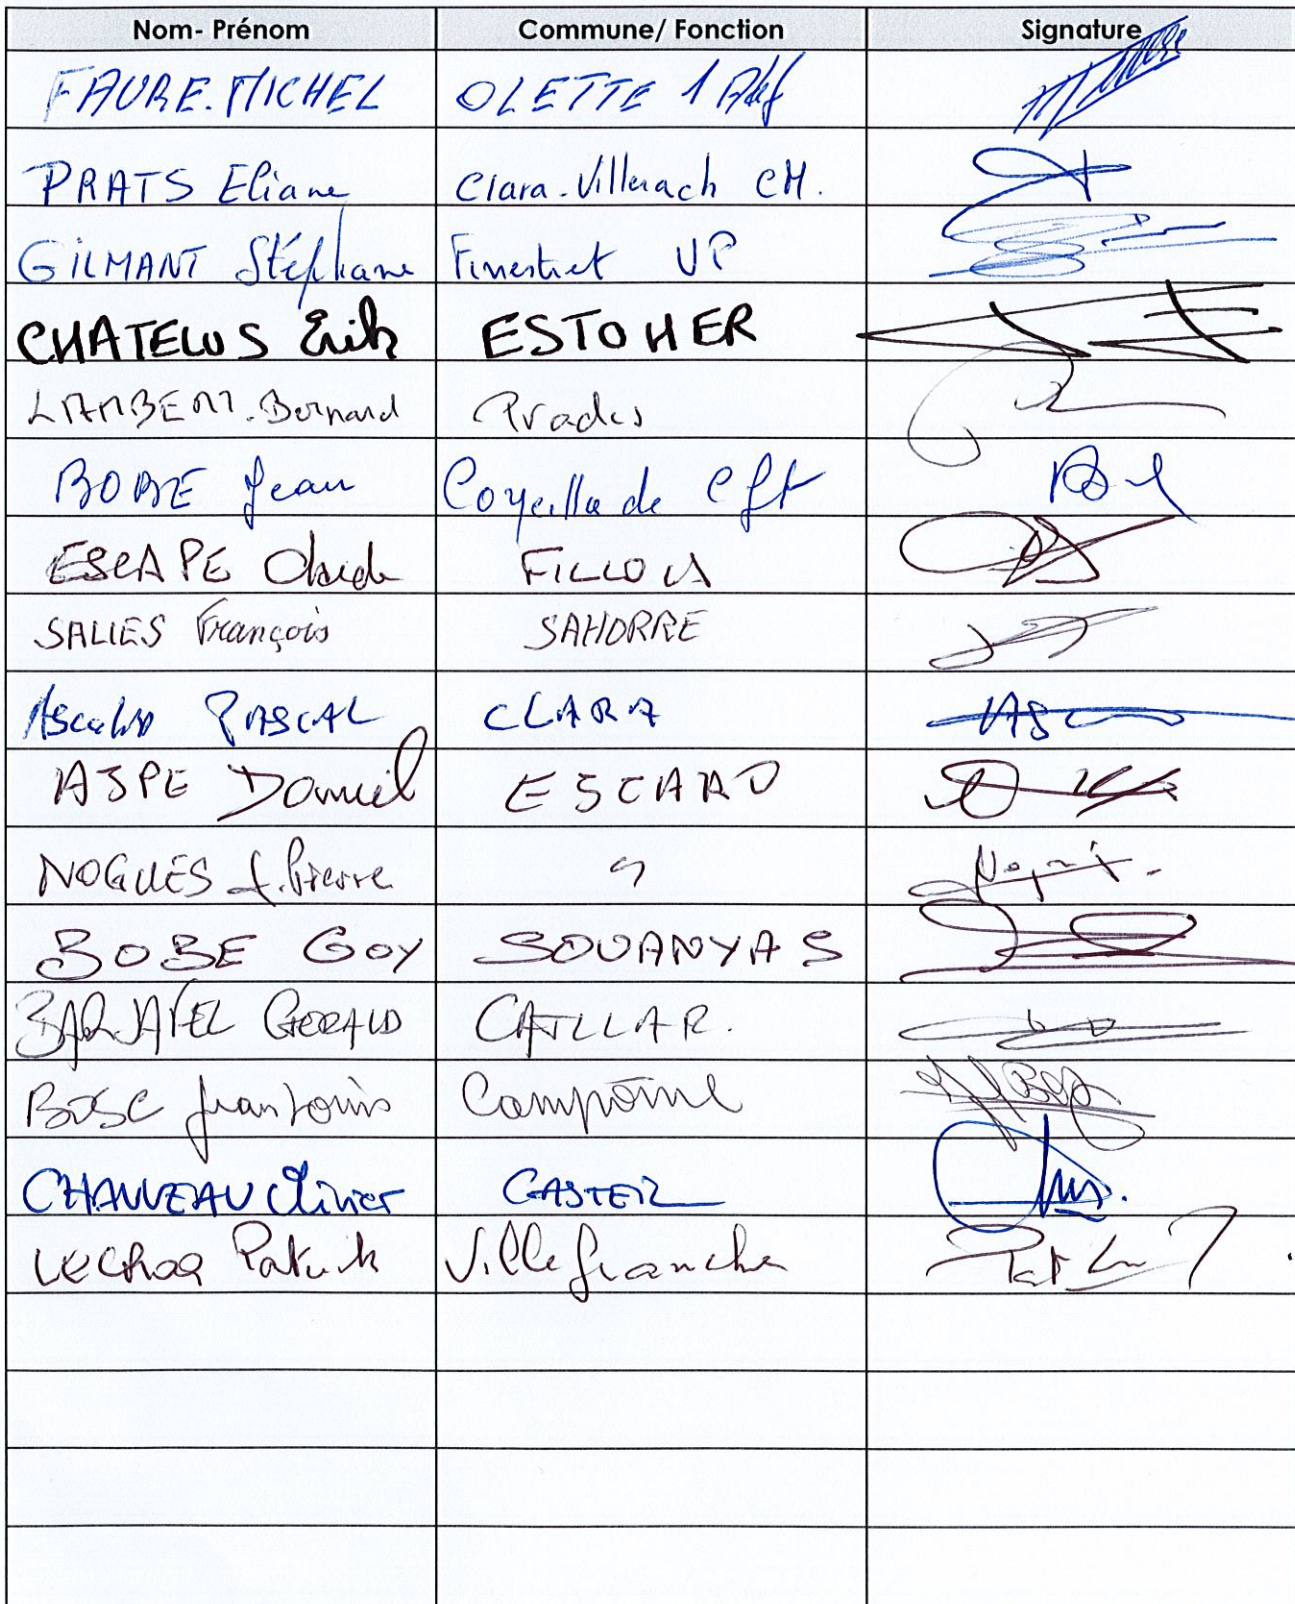 Nom- Prénom Commune/ Fonction Signature
FAURE.MICHEL OLETTE 1 Adj
PRATS Eliane Clara-Villerach CM.
GILMANT Stéphane Finestret VP
CHATELUS Erik ESTOHER
LAMBERT.Bernard Prades
BOBE Jean Coyeilla de Cft
ESCAPE Claude FILLOLS
SALIES François SAHORRE
PASCAL CLARA
ASPE Daniel ESCARO
NOGUES J.Pierre "
BOBE GOY SOUANYAS
GERALD CATLLAR.
BOSC Jean Louis Campôme
CHAUVEAU Olivier CASTEIL
LECROQ Patrick Villefranche